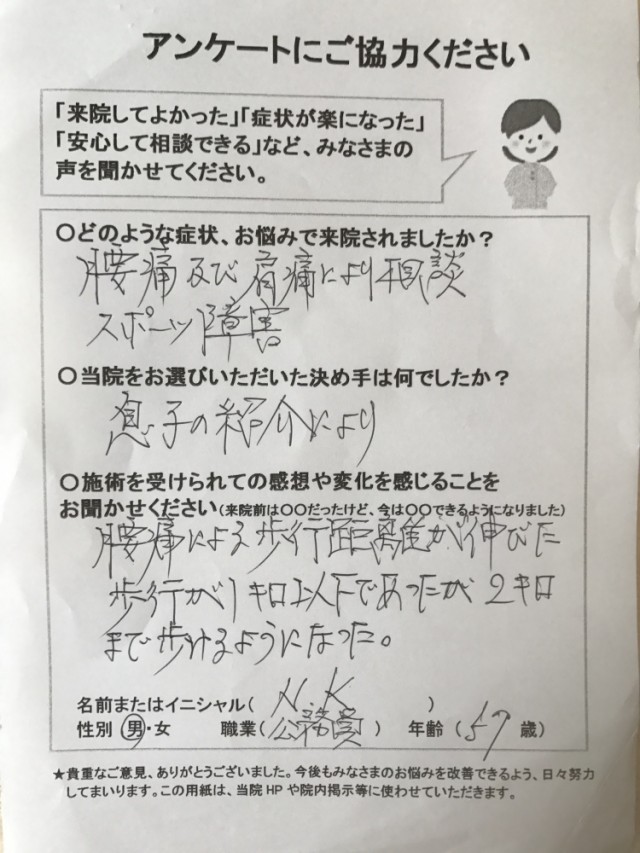 アンケートにご協力ください
「来院してよかった」「症状が楽になった」
「安心して相談できる」など、みなさまの
声を聞かせてください。
〇どのような症状、お悩みで来院されましたか？
腰痛及び肩痛により相談
スポーツ障害
〇当院をお選びいただいた決め手は何でしたか？
息子の紹介により
〇施術を受けられての感想や変化を感じることを
お聞かせください(来院前は〇〇だったけど、今は〇〇できるようになりました)
腰痛による歩行距離が伸びた
歩行が1キロ以下であったが2キロ
まで歩けるようになった。
名前またはイニシャル( N.K )
性別 男・女 職業(公務員) 年齢(57歳)
★貴重なご意見、ありがとうございました。今後もみなさまのお悩みを改善できるよう、日々努力
してまいります。この用紙は、当院HPや院内掲示等に使わせていただきます。